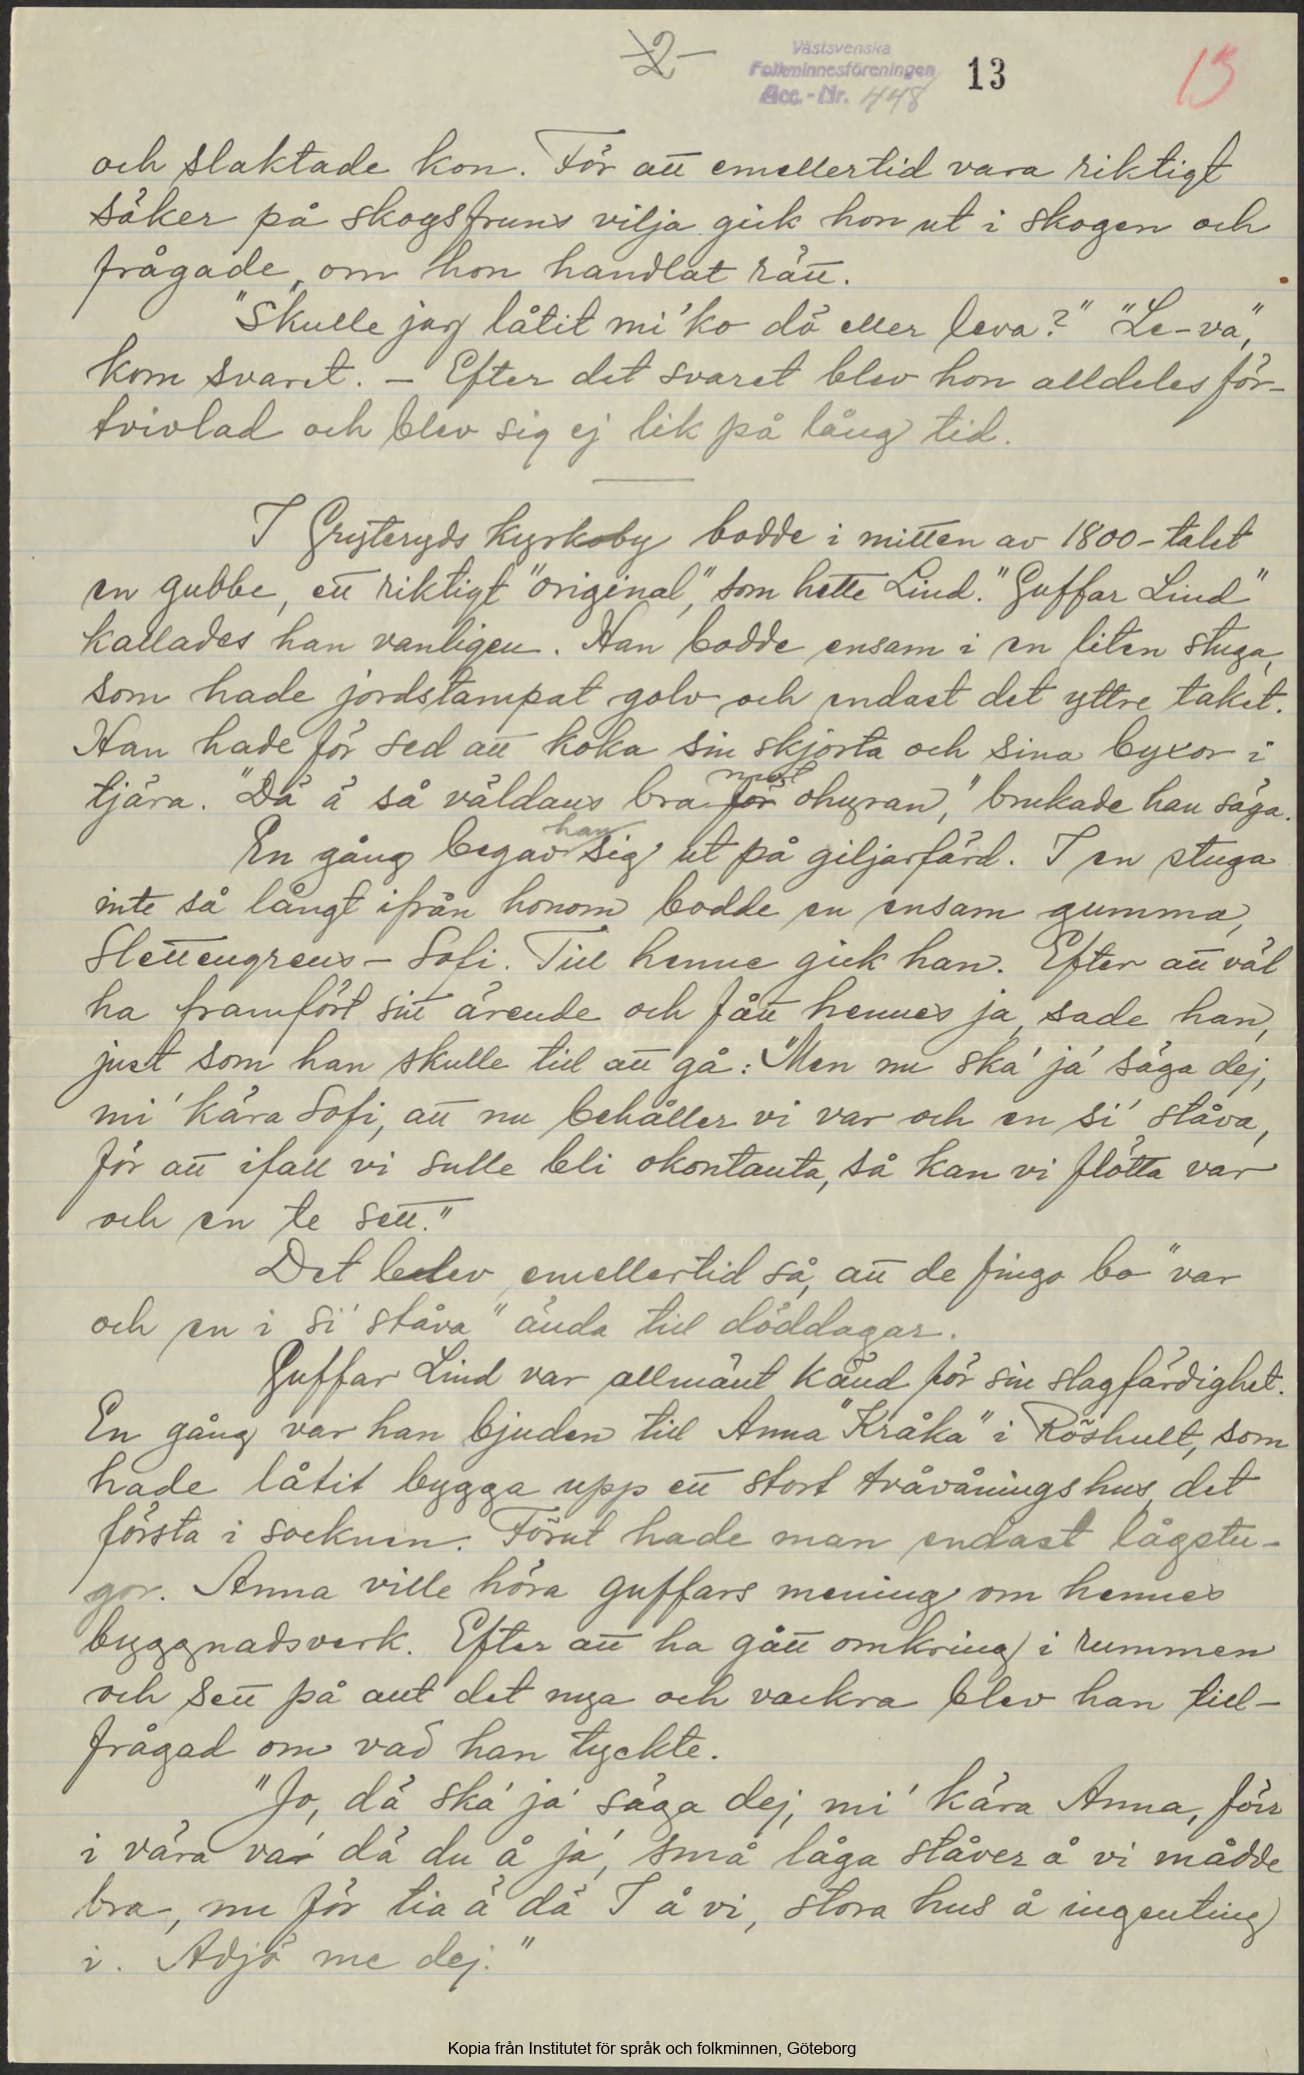 2
Västsvenska
Folkminnesföreningen
Acc.-Nr. 448
13
13
och slaktade kon. För att emellertid vara riktigt
säker på skogsfruns vilja gick hon ut i skogen och
frågade, om hon handlat rätt.
"Skulle jag låtit mi' ko dö eller leva?" "Le-va",
kom svaret. – Efter det svaret blev hon alldeles för-
tvivlad och blev sig ej lik på lång tid.
I Gryteryds kyrkoby bodde i mitten av 1800-talet
en gubbe, ett riktigt "original", som hette Lind. "Guffar Lind"
kallades han vanligen. Han bodde ensam i en liten stuga,
som hade jordstampat golv och endast det yttre taket.
Han hade för sed att koka sin skjorta och sina byxor i
tjära. "Dä ä så väldans bra mot för ohyran," brukade han säga.
En gång begav han sig ut på giljarfärd. I en stuga
inte så långt ifrån honom bodde en ensam gumma,
Slettengrens-Sofi. Till henne gick han. Efter att väl
ha framfört sitt ärende och fått hennes ja, sade han,
just som han skulle till att gå: "Men nu ska' ja' säga dej,
mi' kära Sofi, att nu behåller vi var och en si' ståva,
för att ifall vi sulle bli okontanta, så kan vi flötta var
och en te sett."
Det blev emellertid så, att de fingo bo "var
och en i si' ståva" ända till döddagar.
Guffar Lind var allmänt känd för sin slagfärdighet.
En gång var han bjuden till Anna "Kråka" i Röshult, som
hade låtit bygga upp ett stort tvåvåningshus, det
första i socknen. Förut hade man endast lågstu-
gor. Anna ville höra guffars mening om hennes
byggnadsverk. Efter att ha gått omkring i rummen
och sett på allt det nya och vackra blev han till-
frågad om vad han tyckte.
"Jo, dä ska' ja' säga dej, mi' kära Anna, förr
i våra va' dä du å ja', små låga ståver å vi mådde
bra, nu för tia ä dä I å vi, stora hus å ingenting
i. Adjö me dej."
Kopia från Institutet för språk och folkminnen, Göteborg